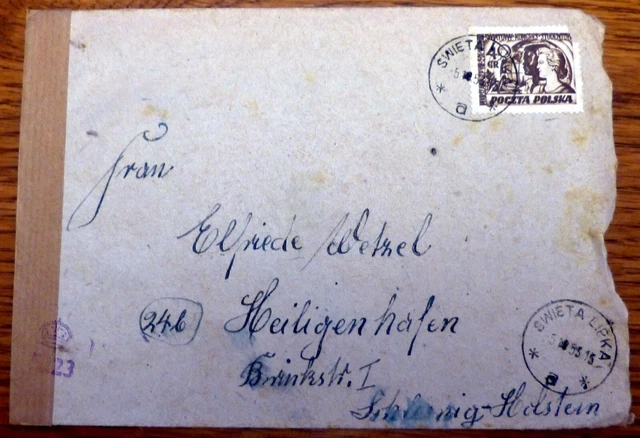 ŚWIĘTA LIPKA
a
POCZTA POLSKA
Frau
Elfriede Wetzel
24b
Heiligenhafen
Brückstr. I
Schleswig-Holstein
ŚWIĘTA LIPKA
a
23